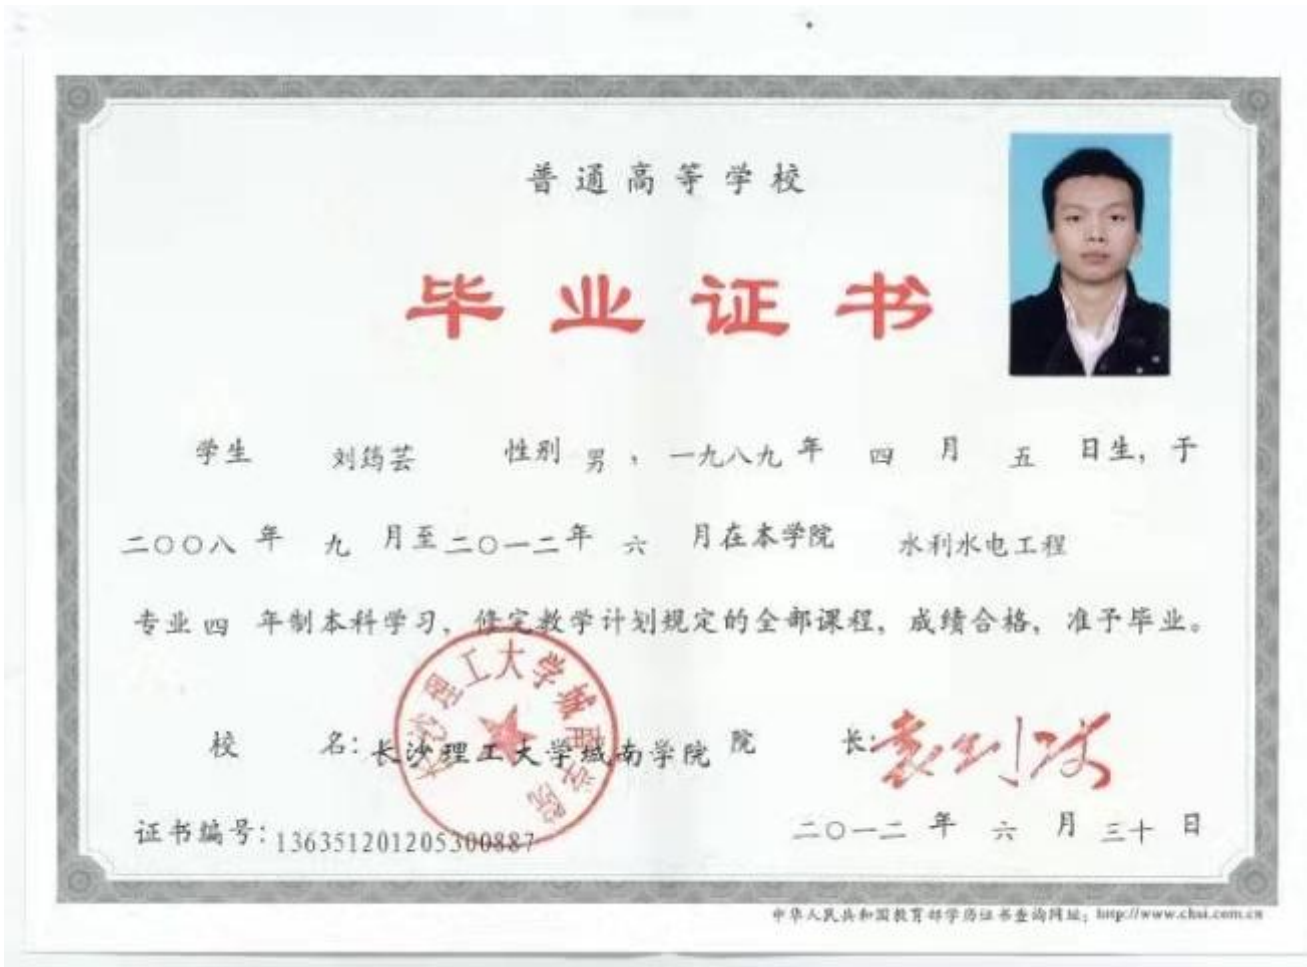 普通高等学校
毕业证书
学生 刘筠芸 性别 男，一九八九年 四 月 五 日生，于
二〇〇八年 九 月至二〇一二年 六 月在本学院 水利水电工程
专业四 年制本科学习，修完教学计划规定的全部课程，成绩合格，准予毕业。
长沙理工大学城南学院
校 名：长沙理工大学城南学院 院 长：
证书编号：136351201205300887 二〇一二 年 六 月 三十 日
中华人民共和国教育部学历证书查询网址：http://www.chsi.com.cn